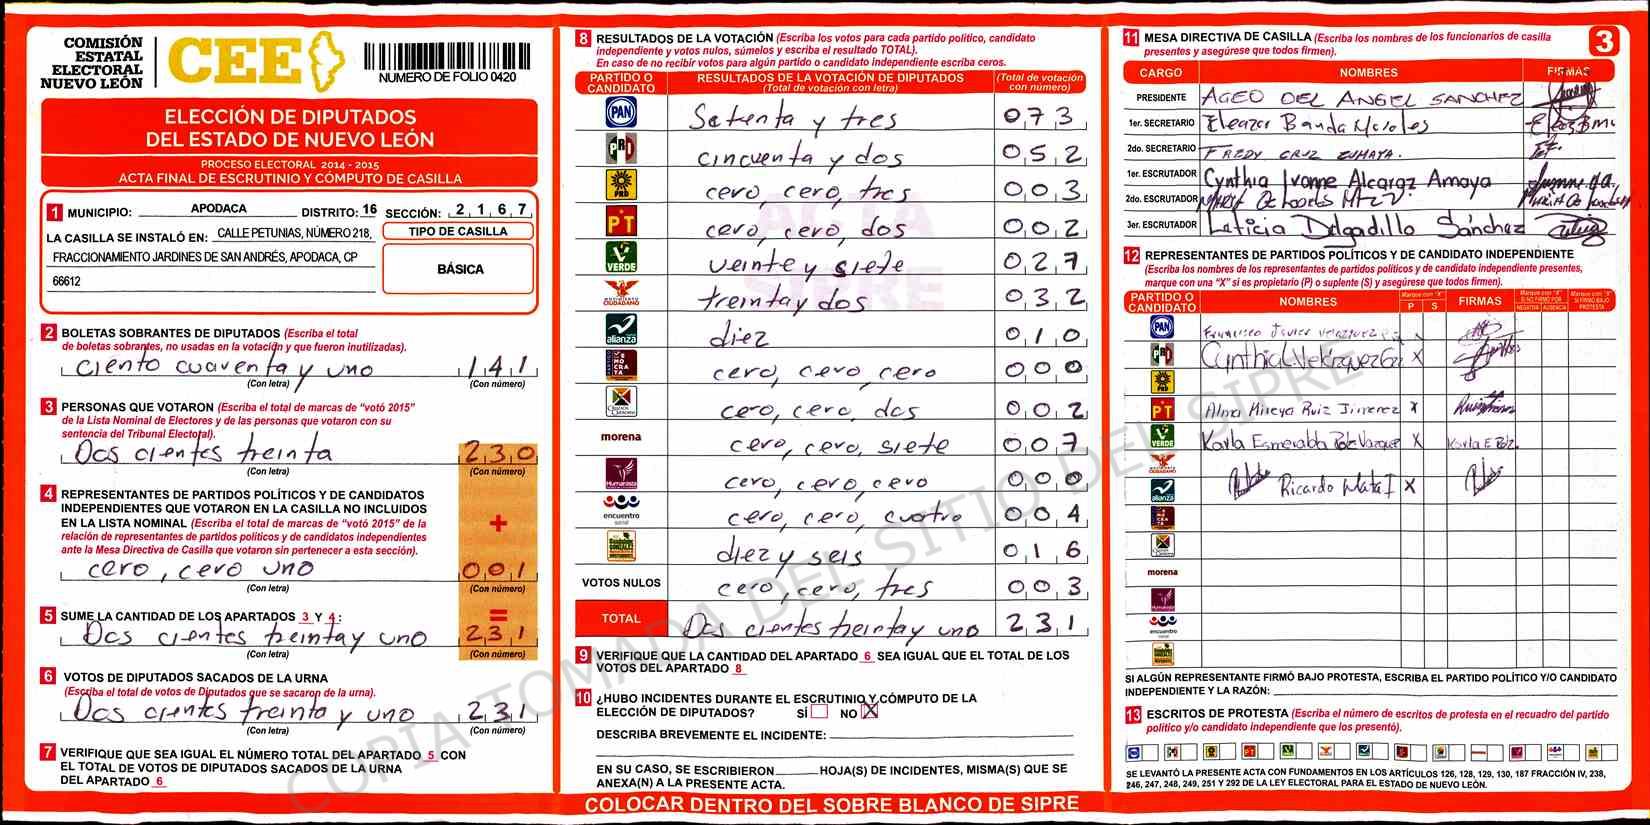 COMISIÓN
ESTATAL
ELECTORAL
NUEVO LEÓN
CEE
NUMERO DE FOLIO 0420
ELECCIÓN DE DIPUTADOS
DEL ESTADO DE NUEVO LEÓN
PROCESO ELECTORAL 2014 - 2015
ACTA FINAL DE ESCRUTINIO Y CÓMPUTO DE CASILLA
1 MUNICIPIO: APODACA DISTRITO: 16 SECCIÓN: 2 1 6 7
LA CASILLA SE INSTALÓ EN: CALLE PETUNIAS, NÚMERO 218,
FRACCIONAMIENTO JARDINES DE SAN ANDRÉS, APODACA, CP
66612
TIPO DE CASILLA
BÁSICA
2 BOLETAS SOBRANTES DE DIPUTADOS (Escriba el total
de boletas sobrantes, no usadas en la votación y que fueron inutilizadas).
ciento cuarenta y uno 1 4 1
(Con letra) (Con número)
3 PERSONAS QUE VOTARON (Escriba el total de marcas de "votó 2015"
de la Lista Nominal de Electores y de las personas que votaron con su
sentencia del Tribunal Electoral).
Dos cientes treinta 2 3 0
(Con letra) (Con número)
4 REPRESENTANTES DE PARTIDOS POLÍTICOS Y DE CANDIDATOS
INDEPENDIENTES QUE VOTARON EN LA CASILLA NO INCLUIDOS
EN LA LISTA NOMINAL (Escriba el total de marcas de "votó 2015" de la
relación de representantes de partidos políticos y de candidatos independientes
ante la Mesa Directiva de Casilla que votaron sin pertenecer a esta sección).
+
cero, cero uno 0 0 1
(Con letra) (Con número)
=
5 SUME LA CANTIDAD DE LOS APARTADOS 3 Y 4:
Dos cientes treinta y uno 2 3 1
(Con letra) (Con número)
6 VOTOS DE DIPUTADOS SACADOS DE LA URNA
(Escriba el total de votos de Diputados que se sacaron de la urna).
Dos cientes treinta y uno 2 3 1
(Con letra) (Con número)
7 VERIFIQUE QUE SEA IGUAL EL NÚMERO TOTAL DEL APARTADO 5 CON
EL TOTAL DE VOTOS DE DIPUTADOS SACADOS DE LA URNA
DEL APARTADO 6
8 RESULTADOS DE LA VOTACIÓN (Escriba los votos para cada partido político, candidato
independiente y votos nulos, súmelos y escriba el resultado TOTAL).
En caso de no recibir votos para algún partido o candidato independiente escriba ceros.
PARTIDO O CANDIDATO RESULTADOS DE LA VOTACIÓN DE DIPUTADOS (Total de votación con letra) (Total de votación con número)
PAN Setenta y tres 0 7 3
PRI cincuenta y dos 0 5 2
PRD cero, cero, tres 0 0 3
PT cero, cero, dos 0 0 2
VERDE veinte y siete 0 2 7
MOVIMIENTO CIUDADANO treinta y dos 0 3 2
alianza diez 0 1 0
DEMOCRATA cero, cero, cero 0 0 0
Cruzada Ciudadana cero, cero, dos 0 0 2
morena cero, cero, siete 0 0 7
Humanista cero, cero, cero 0 0 0
encuentro social cero, cero, cuatro 0 0 4
GONZÁLEZ diez y seis 0 1 6
VOTOS NULOS cero, cero, tres 0 0 3
TOTAL Dos cientes treinta y uno 2 3 1
ACTA
SIPRE
9 VERIFIQUE QUE LA CANTIDAD DEL APARTADO 6 SEA IGUAL QUE EL TOTAL DE LOS
VOTOS DEL APARTADO 8
10 ¿HUBO INCIDENTES DURANTE EL ESCRUTINIO Y CÓMPUTO DE LA
ELECCIÓN DE DIPUTADOS? SÍ NO X
DESCRIBA BREVEMENTE EL INCIDENTE:
EN SU CASO, SE ESCRIBIERON HOJA(S) DE INCIDENTES, MISMA(S) QUE SE
ANEXA(N) A LA PRESENTE ACTA.
COLOCAR DENTRO DEL SOBRE BLANCO DE SIPRE
11 MESA DIRECTIVA DE CASILLA (Escriba los nombres de los funcionarios de casilla
presentes y asegúrese que todos firmen).
3
CARGO NOMBRES FIRMAS
PRESIDENTE AGEO DEL ANGEL SANCHEZ
1er. SECRETARIO Eleazar Banda Morales
2do. SECRETARIO FREDY CRUZ ZUMAYA.
1er. ESCRUTADOR Cynthia Ivonne Alcaraz Amaya
2do. ESCRUTADOR
3er. ESCRUTADOR Leticia Delgadillo Sánchez
12 REPRESENTANTES DE PARTIDOS POLÍTICOS Y DE CANDIDATO INDEPENDIENTE
(Escriba los nombres de los representantes de partidos políticos y de candidato independiente presentes,
marque con una "X" si es propietario (P) o suplente (S) y asegúrese que todos firmen).
PARTIDO O CANDIDATO NOMBRES Marque con "X" P S FIRMAS Marque con "X" SI NO FIRMÓ POR NEGATIVA AUSENCIA Marque con "X" SI FIRMÓ BAJO PROTESTA
PAN Francisco Javier Velazquez
PRI Cynthia Velazquez X
PRD
PT Alma Mireya Ruiz Jimenez X
VERDE Karla Esmeralda Vazquez X Karla E.
MOVIMIENTO CIUDADANO
alianza Ricardo Mata X
morena
Humanista
encuentro social
SI ALGÚN REPRESENTANTE FIRMÓ BAJO PROTESTA, ESCRIBA EL PARTIDO POLÍTICO Y/O CANDIDATO
INDEPENDIENTE Y LA RAZÓN:
13 ESCRITOS DE PROTESTA (Escriba el número de escritos de protesta en el recuadro del partido
político y/o candidato independiente que los presentó).
SE LEVANTÓ LA PRESENTE ACTA CON FUNDAMENTOS EN LOS ARTÍCULOS 126, 128, 129, 130, 187 FRACCIÓN IV, 238,
246, 247, 248, 249, 251 Y 292 DE LA LEY ELECTORAL PARA EL ESTADO DE NUEVO LEÓN.
COPIA TOMADA DEL SITIO DEL SIPRE